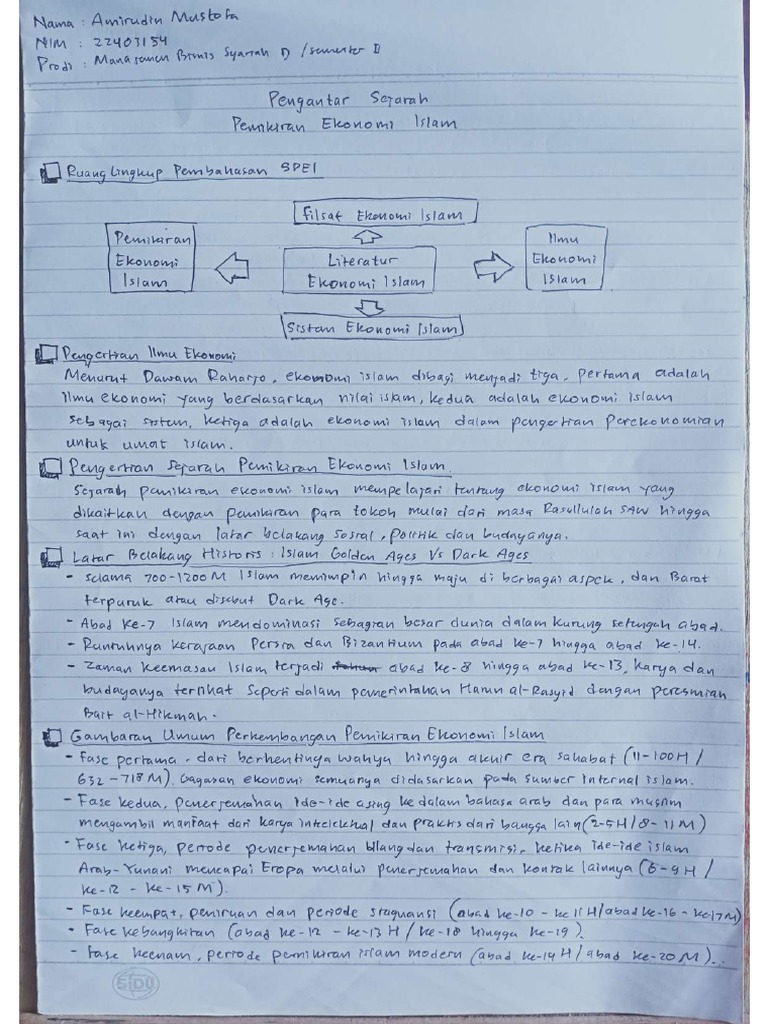 Nama : Amirudin Mustofa
NIM : 22403154
Prodi : Manajemen Bisnis Syariah D /semester II
Pengantar Sejarah
Pemikiran Ekonomi Islam
Ruang Lingkup Pembahasan SPEI
Filsaf Ekonomi Islam
Pemikiran
Ekonomi
Islam
Literatur
Ekonomi Islam
Ilmu
Ekonomi
Islam
Sistem Ekonomi Islam
Pengertian Ilmu Ekonomi
Menurut Dawam Raharjo, ekonomi islam dibagi menjadi tiga, pertama adalah
Ilmu ekonomi yang berdasarkan nilai islam, kedua adalah ekonomi islam
sebagai sistem, ketiga adalah ekonomi islam dalam pengertian Perekonomian
untuk umat islam.
Pengertian Sejarah Pemikiran Ekonomi Islam.
Sejarah pemikiran ekonomi islam mempelajari tentang ekonomi islam yang
dikaitkan dengan pemikiran para tokoh mulai dari masa Rasullulah SAW hingga
saat ini dengan latar belakang sosial, politik dan budayanya.
Latar Belakang Historis : Islam Golden Ages Vs Dark Ages
- selama 700-1200 M Islam memimpin hingga maju di berbagai aspek, dan Barat
terpuruk atau disebut Dark Age.
- Abad ke-7 Islam mendominasi sebagian besar dunia dalam kurung setengah abad.
- Runtuhnya kerajaan Persia dan Bizantium pada abad ke-7 hingga abad ke-14.
- Zaman keemasan Islam terjadi abad ke-8 hingga abad ke-13, karya dan
budayanya terlihat seperti dalam pemerintahan Harun al-Rasyid dengan peresmian
Bait al-Hikmah.
Gambaran Umum Perkembangan Pemikiran Ekonomi Islam
- Fase pertama, dari berhentinya wahyu hingga akhir era sahabat (11-100H /
632-718 M), Gagasan ekonomi semuanya didasarkan pada sumber internal islam.
- Fase kedua, penerjemahan ide-ide asing ke dalam bahasa arab dan para muslim
mengambil manfaat dari karya intelektual dan praktis dari bangsa lain (2-5H/8-11M)
- Fase ketiga, periode penerjemahan ulang dan transmisi, ketika ide-ide islam
Arab-Yunani mencapai Eropa melalui penerjemahan dan kontak lainnya (6-9 H /
ke-12 - ke-15 M).
- Fase keempat, peniruan dan periode stagnansi (abad ke-10 - ke 11 H/abad ke-16 - ke17M)
- Fase kebangkitan (abad ke-12 - ke-13 H / ke-18 hingga ke-19).
- Fase keenam, periode pemikiran islam modern (abad ke-14 H / abad ke-20 M)...
SIDU